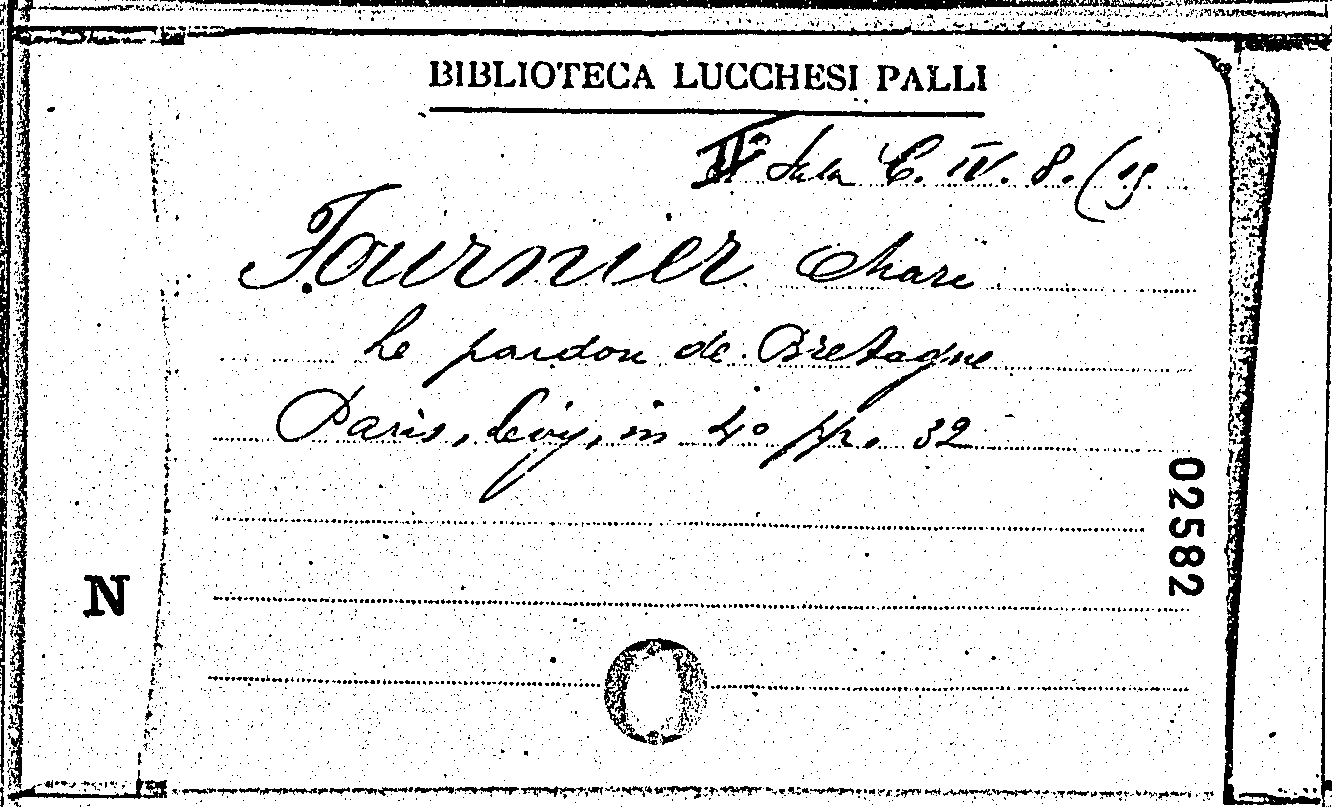 BIBLIOTECA LUCCHESI PALLI
IIª Sala C. IV. 8. (19
Fournier Marc
Le pardon de Bretagne
Paris, Levy, in 4º pp. 32
02582
N